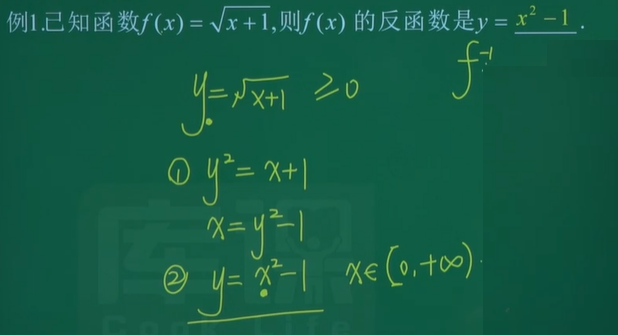 例1.已知函数f(x)=√(x+1),则f(x)的反函数是y=x²-1.
y=√(x+1) ≥0
f⁻¹
① y²=x+1
x=y²-1
② y=x²-1 x∈[0,+∞)
库课